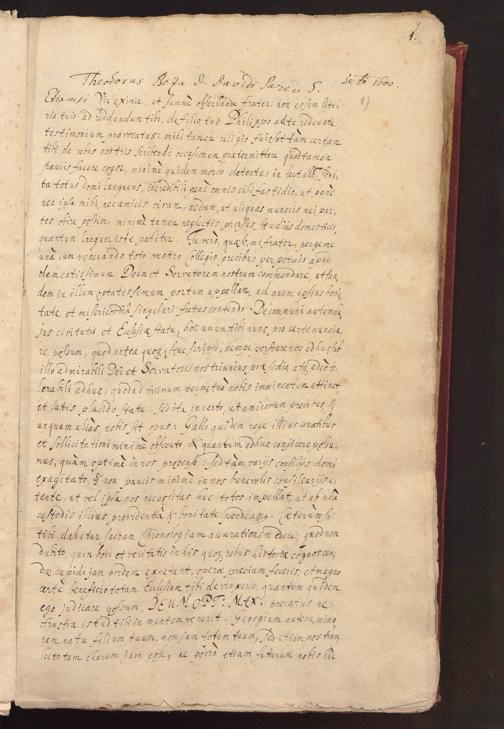 Theodorus Beza D. Davidi Pareo S.
1600.
1.
1)
Etiamsi Vir eximie, et summè observande frater, non essem lite-
ris tuis ad reddendum tibi, de filio tuo Philippo ad te redeunte
testimonium provocatus: mihi tamen religio fuisset tam certam
tibi de rebus nostris scribendi occasionem praetermittere, quod tamen
paucis facere cogor, minimè quidem morbo detentus in lectulo, sed i-
ta totus domi languens, incredibili penè omnis cibi fastidio, ut, penè
nec ipse mihi nec amicis vivam, nedum, ut aliquas muneris mei par-
tes obire possim: minimè tamen neglectis, privatis studiis domesticis,
quantum languor iste patitur. Tu verò, quaeso, mi frater, perge me
unà cum venerando toto vestro Collegio, precibus perpetuis apud
clementissimum Deum et Servatorem nostrum commendare, ut tan-
dem in illum optatissimum portum appellam, ad quem ipsius boni-
tate et misericordia singulari fretus contendo. De communi autem hu-
jus civitatis et Ecclesiae statu, hoc unum tibi nunc pro certo nuncia-
re possum, quod antea quoque scripsi, nempe versari nos adhuc sub
illo admirabili Dei et Servatoris nostri unius praesidio,
lerabili adhuc, quod ad vicinum perpetuò nobis imminentem attinet,
et satis placido statu: sed ita incerto, ut amicorum precibus, si
unquam aliàs, nobis sit opus: Gallo quidem rege illius conatibus
et sollicitationi minimè obscuro, & quantum adhuc conjicere possu-
mus, quàm optimè in nos propenso: sed tàm variis consiliis domi
exagitato, & non paucis minimè in nos benevolis consiliariis ni-
tente, ut vel ipsa nos necessitas huc totos impellat, ut ab unà
coelestis illius providentiâ & bonitate pendeamus. Caeterùm si
tibi dabitur sacram Chronologiam navatione edere, quod non
dubito, quin boni et veritatis in his quoque rebus historiae cognoscen-
dae cupidi jam pridem expetant, operae precium feceris, et magno
certè beneficio totam Ecclesiam tibi devinxeris, quantum quidem
ego judicare possum, DEUM OPT: MAX: precatus, ne
frustra istud tibi in mentem venerit. Georgium autem, mino-
rem natu filium tuum, non jam totum tuum, sed etiam nostrum
scito tam charum jam esse, ac porrò etiam futurum nobis hîc